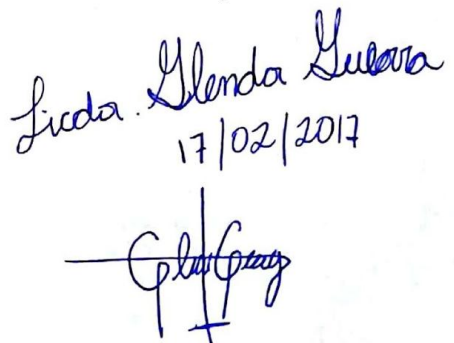 Licda. Glenda Guerra
17/02/2017